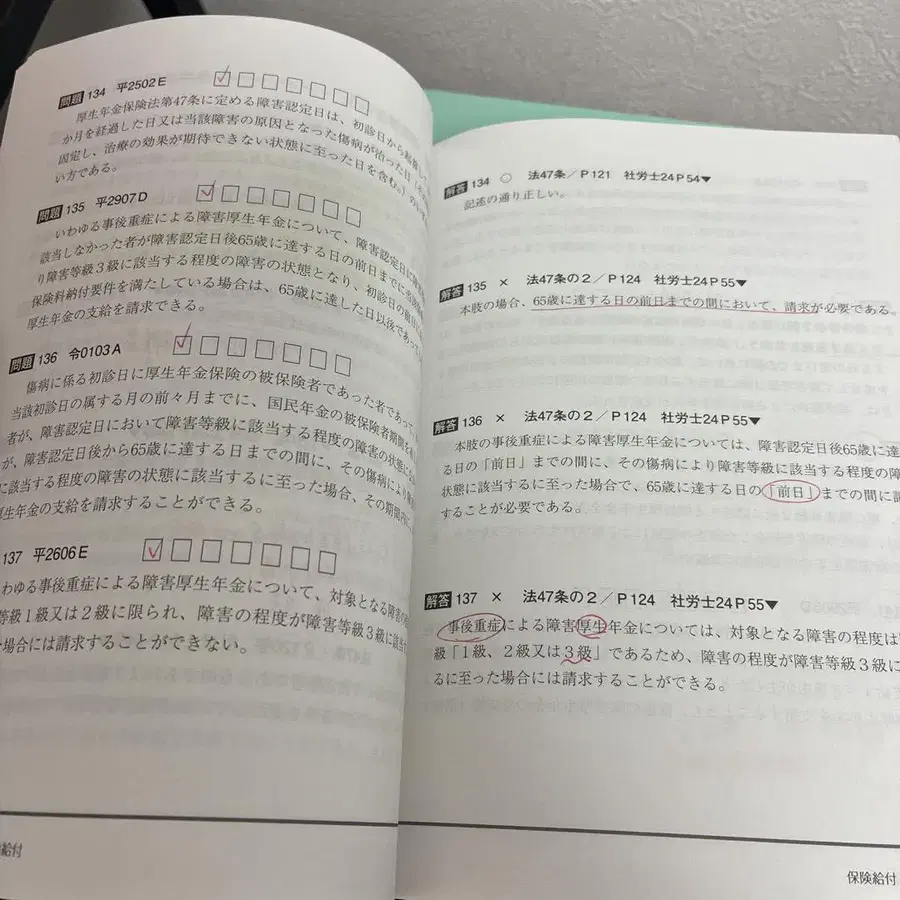 問題 134 平2502E
厚生年金保険法第47条に定める障害認定日は、初診日から起算して
か月を経過した日又は当該障害の原因となった傷病が治った日(
固定し、治療の効果が期待できない状態に至った日を含む。)の
い方である。
問題 135 平2907D
いわゆる事後重症による障害厚生年金について、障害認定日に
該当しなかった者が障害認定日後65歳に達する日の前日までに
り障害等級3級に該当する程度の障害の状態となり、初診日の前
保険料納付要件を満たしている場合は、65歳に達した日以後であっ
厚生年金の支給を請求できる。
問題 136 令0103A
傷病に係る初診日に厚生年金保険の被保険者であった者であって、
当該初診日の属する月の前々月までに、国民年金の被保険者期間を
者が、障害認定日において障害等級に該当する程度の障害の状態に
が、障害認定日後から65歳に達する日までの間に、その傷病により
に該当する程度の障害の状態に該当するに至った場合、その期間内に、
厚生年金の支給を請求することができる。
137 平2606E
わゆる事後重症による障害厚生年金について、対象となる障害の
等級1級又は2級に限られ、障害の程度が障害等級3級に該
場合には請求することができない。
給付
解答 134 ○ 法47条/P121 社労士24P54▼
記述の通り正しい。
解答 135 × 法47条の2/P124 社労士24P55▼
本肢の場合、65歳に達する日の前日までの間において、請求が必要である。
解答 136 × 法47条の2/P124 社労士24P55▼
本肢の事後重症による障害厚生年金については、障害認定日後65歳に達
る日の「前日」までの間に、その傷病により障害等級に該当する程度の障
状態に該当するに至った場合で、65歳に達する日の「前日」までの間に
することが必要である。
解答 137 × 法47条の2/P124 社労士24P55▼
事後重症による障害厚生年金については、対象となる障害の程度は
級「1級、2級又は3級」であるため、障害の程度が障害等級3級に
るに至った場合には請求することができる。
保険給付